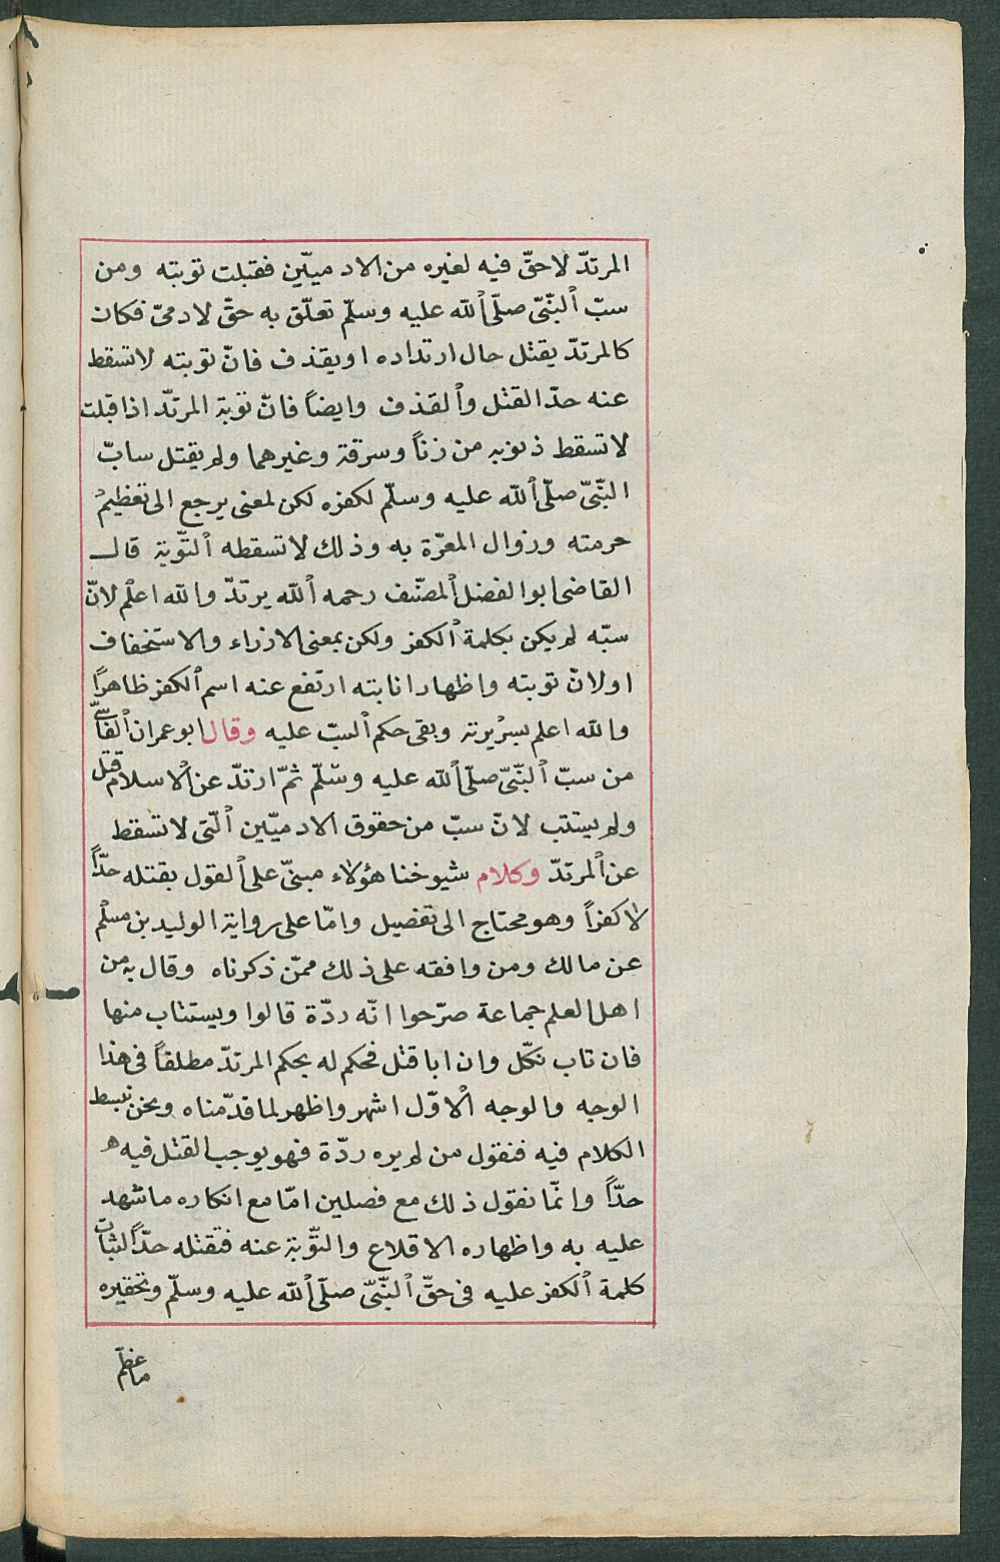 المرتدّ لاحقّ فيه لغيره من الادميّين فقبلت توبته ومن
سبّ النّبىّ صلّى الله عليه وسلّم تعلّق به حقّ لادمىّ فكان
كالمرتدّ يقتل حال ارتداده او يقذف فانّ توبته لاتسقط
عنه حدّ القتل والقذف وايضاً فانّ توبة المرتدّ اذا قبلت
لاتسقط ذنوبه من زناً وسرقة وغيرهما ولم يقتل سابّ
النّبىّ صلّى الله عليه وسلّم لكفره لكن لمعنى يرجع الى تعظيم
حرمته وزوال المعرّة به وذلك لاتسقطه التّوبة قال
القاضى ابو الفضل المصنّف رحمه الله يرتدّ والله اعلم لانّ
سبّه لم يكن بكلمة الكفر ولكن بمعنى الازراء والاستخفاف
او لانّ توبته واظهار انابته ارتفع عنه اسم الكفر ظاهراً
والله اعلم بسريرته وبقى حكم السبّ عليه وقال ابو عمران الفاسىّ
من سبّ النّبىّ صلّى الله عليه وسّلّم ثمّ ارتدّ عن الاسلام قتل
ولم يستتب لانّ سبّ من حقوق الادميّين الّتى لاتسقط
عن المرتدّ وكلام شيوخنا هؤلاء مبنىّ على القول بقتله حدّاً
لا كفراً وهو محتاج الى تفصيل وامّا على رواية الوليد بن مسلم
عن مالك ومن وافقه على ذلك ممّن ذكرناه وقال به من
اهل العلم جماعة صرّحوا انّه ردّة قالوا ويستتاب منها
فان تاب نكّل وان ابا قتل فحكم له بحكم المرتدّ مطلقاً فى هذا
الوجه والوجه الاوّل اشهر واظهر لما قدّمناه ونحن نبسط
الكلام فيه فنقول من لم يره ردّة فهو يوجب القتل فيه
حدّاً وانّما نقول ذلك مع فصلين امّا مع انكاره ماشهد
عليه به واظهاره الاقلاع والتّوبة عنه فنقتله حدّاً لثبات
كلمة الكفر عليه فى حقّ النّبىّ صلّى الله عليه وسلّم وتحقيره
ماعظّم